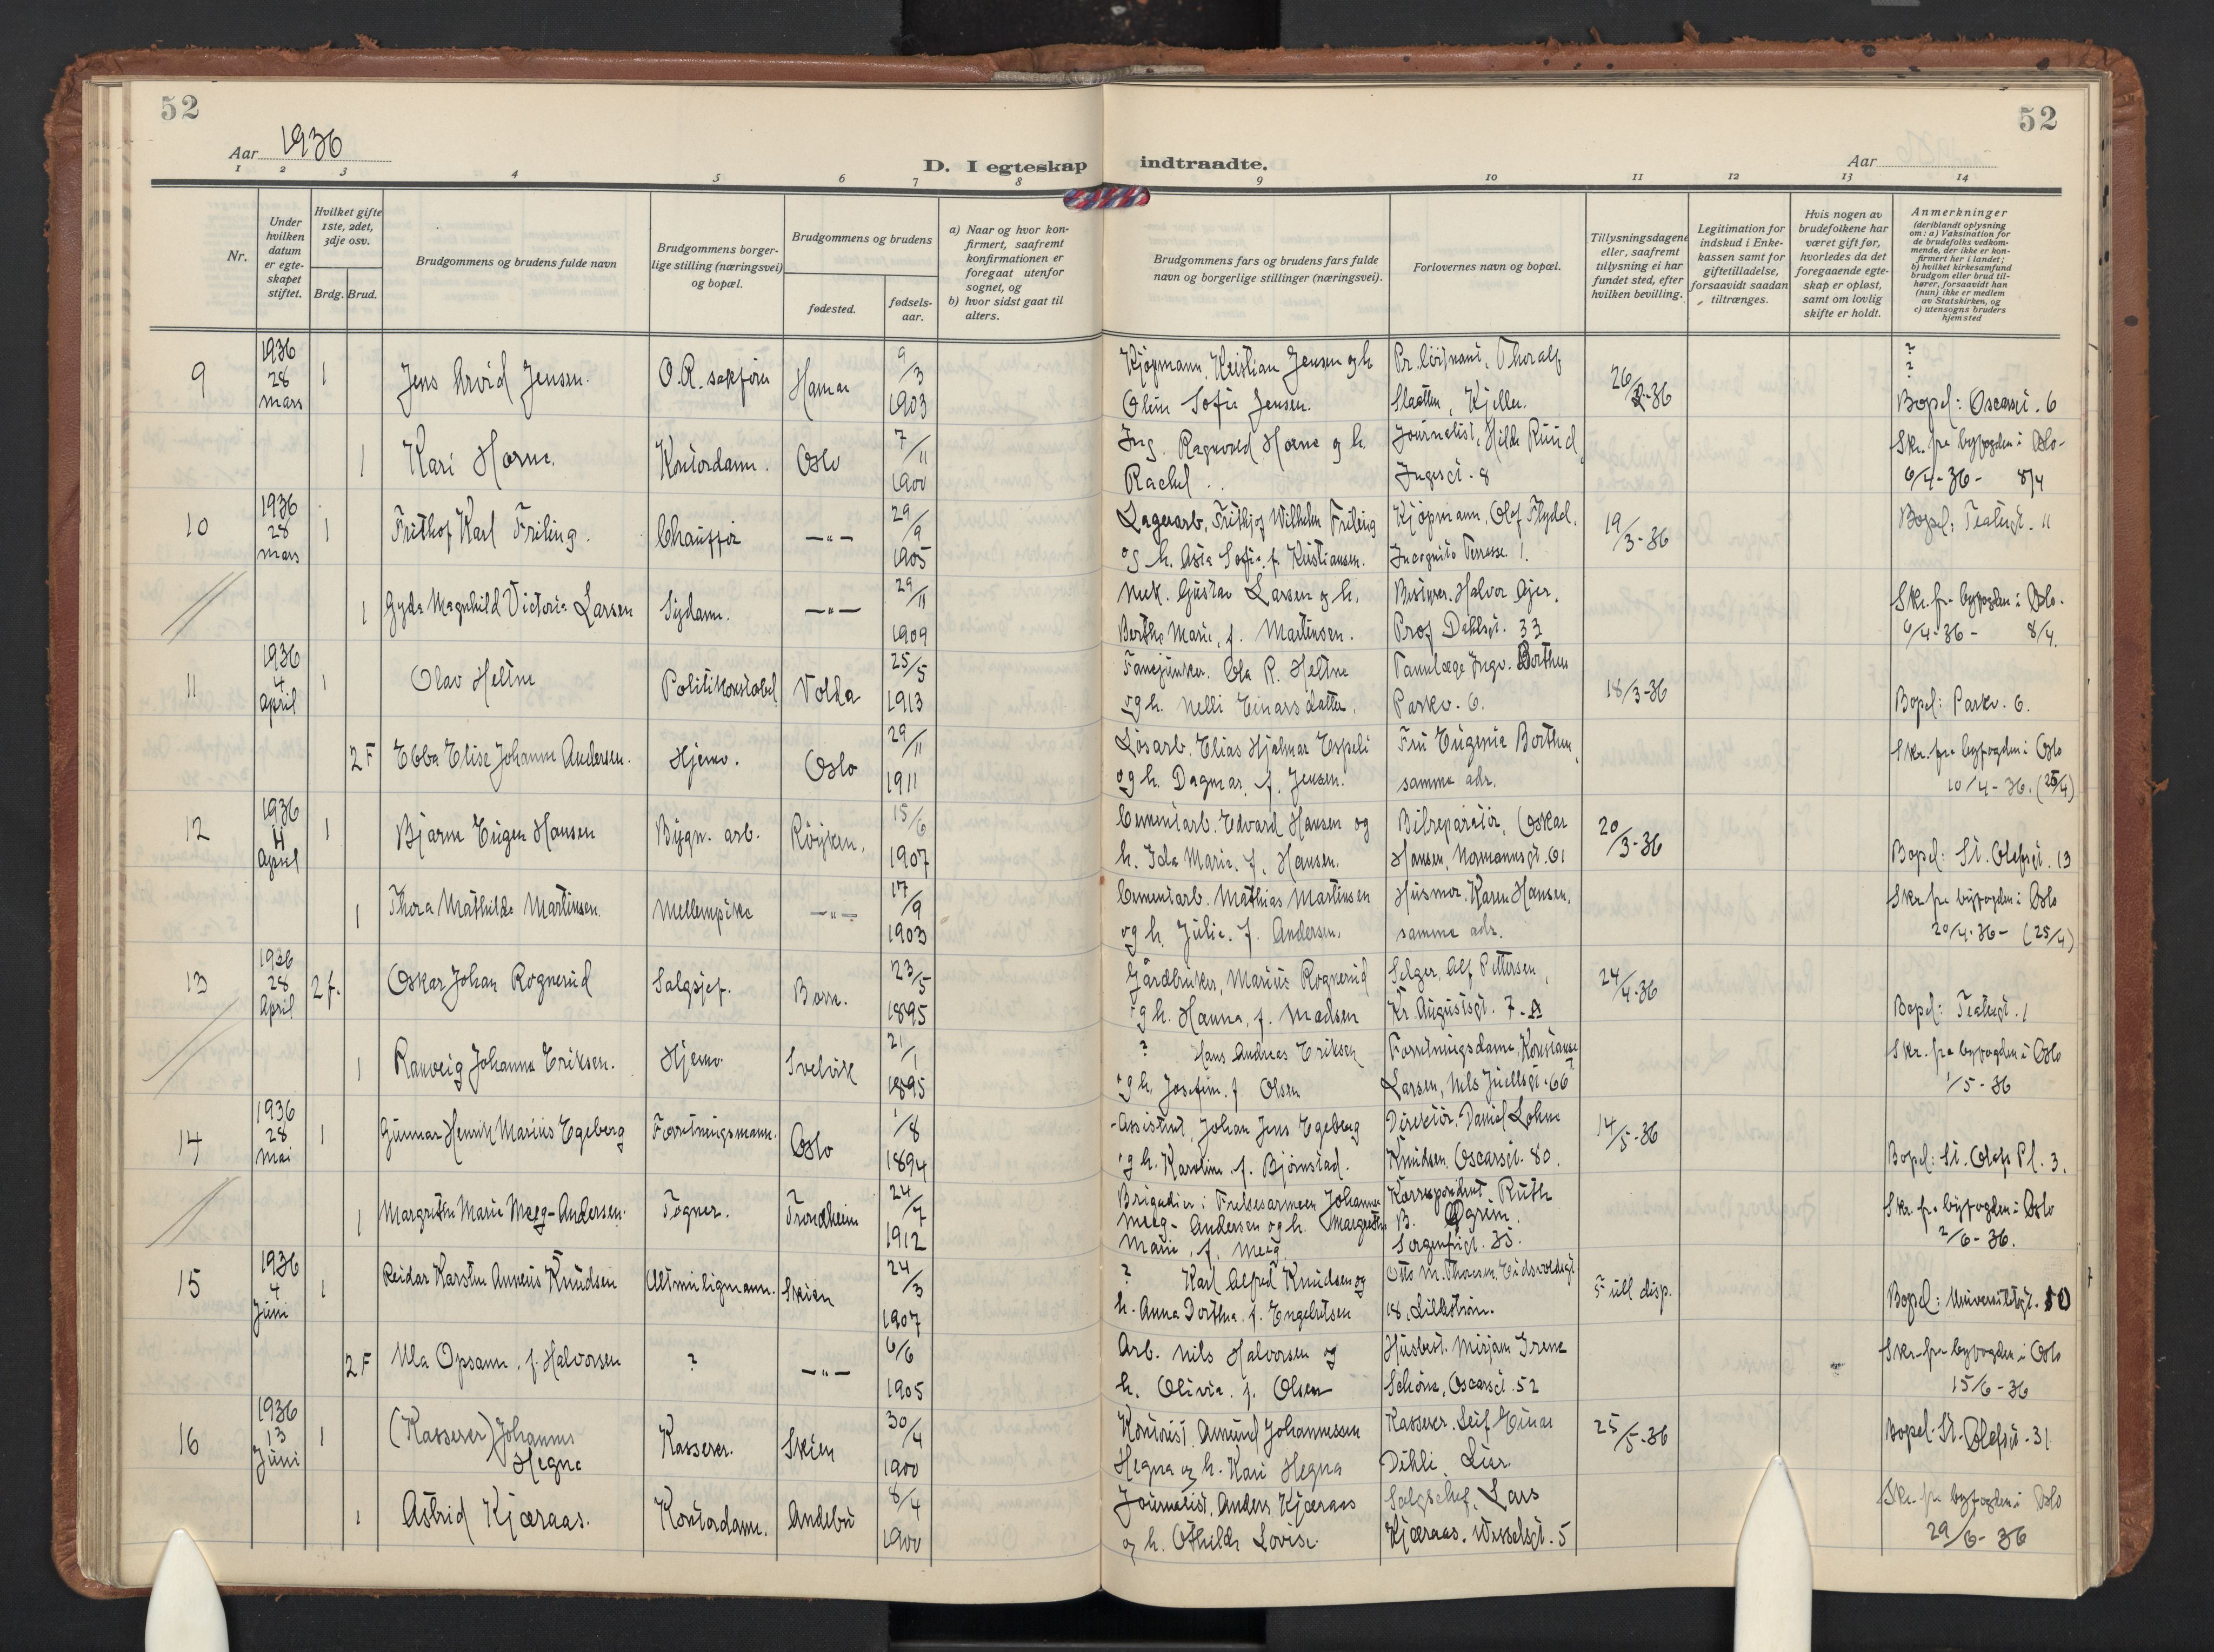 52
52
Aar 1936
D. I egteskap indtraadte.
Aar
1 2 3 4 5 6 7 8 9 10 11 12 13 14
Nr.
Under hvilken datum er egteskapet stiftet.
Hvilket gifte 1ste, 2det, 3dje osv.
Brdg. Brud.
Brudgommens og brudens fulde navn
Brudgommens borgerlige stilling (næringsvei) og bopæl.
Brudgommens og brudens
fødested.
fødselsaar.
a) Naar og hvor konfirmert, saafremt konfirmationen er foregaat utenfor sognet, og
b) hvor sidst gaat til alters.
Brudgommens fars og brudens fars fulde navn og borgerlige stillinger (næringsvei).
Forlovernes navn og bopæl.
Tillysningsdagene eller, saafremt tillysning ei har fundet sted, efter hvilken bevilling.
Legitimation for indskud i Enkekassen samt for giftetilladelse, forsaavidt saadan tiltrænges.
Hvis nogen av brudefolkene har været gift før, hvorledes da det foregaaende egteskap er opløst, samt om lovlig skifte er holdt.
Anmerkninger (deriblandt oplysning om: a) Vaksination for de brudefolks vedkommende, der ikke er konfirmert her i landet; b) hvilket kirkesamfund brudgom eller brud tilhører, forsaavidt han (hun) ikke er medlem av Statskirken, og c) utensogns bruders hjemsted
9 1936 28 mars 1 Jens Arvid Jensen. O.R. sakfører Hamar 9/3 1903 Kjøpmann. Kristian Jensen og h. Olein Sofie Jensen. Thoralf Slaatten, Kjeller. 26/2-36 ? ? Bopel: Oscarsgt. 6
1 Kari Horne. Kontordame. Oslo 7/11 1900 Ing. Ragnvald Horne og h. Rachel Journalist, Hilde Ruud, Ingesgt. 8 Skr. fra byfogden i Oslo 6/4-36 - 8/4
10 1936 28 mars 1 Frithof Karl Friling. Chauffør —"— 29/9 1905 Lagerarb. Frithjof Wilhelm Friling og h. Asta Sofie, f. Kristiansen. Kjøpmann. Olof Flydal. Incognito Terrasse 1. 19/3-36 Bopel: Teatergt. 11
1 Gyda Magnhild Victoria Larsen Sydame. —"— 29/11 1909 Mek. Gustav Larsen og h. Bertha Marie, f. Martinsen. Bestyrer. Halvor Ajer. Prof Dahlsgt. 33 Skr. fra byfogden i Oslo. 6/4-36 - 8/4.
11 1936 4 April 1 Olav Heltne Politikonstabel Volda 25/5 1913 Fanejunker. Ola R. Heltne og h. Nelli Einarsdatter. Tannlæge Ingv. Borthen Parkv. 6. 18/3-36 Bopel: Parkv. 6.
2 F Ebba Elise Johanne Andersen. Hjemv. Oslo 29/11 1911 Løsarb. Elias Hjalmar Espeli og h. Dagmar, f. Jensen. Fru Eugenia Borthen, samme adr. Skr. fra byfogden i Oslo 10/4-36. (25/4)
12 1936 4 April 1 Bjarne Eugen Hansen Bygn. arb. Røyken. 15/6 1907 Cementarb. Edvard Hansen og h. Ida Marie, f. Hansen. Bilreparatør, Oskar Hansen, Normannsgt. 61 20/3-36 Bopel: St. Olafsgt. 13
1 Thora Mathilde Martinsen. Mellempike —"— 17/9 1903 Cementarb. Mathias Martinsen og h. Julie. f. Andersen. Husmor. Karen Hansen. samme adr. Skr. fra byfogden i Oslo 20/4-36 - (25/4)
13 1936 28 April 2 f. Oskar Johan Rognerud Salgsjef. Borre. 23/5 1895 Gårdbruker, Marius Rognerud og h. Hanna, f. Madsen Selger. Alf Pettersen, Kr. Augustsgt. 7-A 24/4-36 Bopel: Teatergt. 1
1 Ranveig Johanne Eriksen. Hjemv. Svelvik 21/1 1895 ? Hans Andreas Eriksen og h. Josefine. f Olsen Forretningsdame, Konstanse Larsen, Nils Juelsgt. 66 Skr. fra byfogden i Oslo 1/5-36
14 1936 28 Mai 1 Gunnar Henrik Marius Egeberg Forretningsmann. Oslo 1/8 1894 Assistent, Johan Jens Egeberg og h. Karoline, f. Bjørnstad. Direktør. Daniel Lohne Knudsen. Oscarsgt. 80. 14/5-36 Bopel: St. Olafs Pl. 3.
1 Margrethe Marie Meeg-Andersen. Tegner. Trondheim 24/7 1912 Brigader i Frelsesarmeen Johannes Meeg-Andersen og h. Margrethe Marie, f. Meeg Korrespondent Ruth B. Øgrim. Sorgenfrigt. 35. Skr. fra byfogden i Oslo 2/6-36.
15 1936 4 Juni 1 Reidar Karsten Anneus Knudsen Altmuligmann. Skien 24/3 1907 ? Karl Alfred Knudsen og h. Anna Dorthea. f. Engebretsen Otto M. Thoresen. Eidsvoldsgt. 18. Lillestrøm. 5 till disp. Bopel: Universitetsgt. 10
2 F Ula Opsann, f. Halvorsen ? —"— 6/6 1905 Arb. Nils Halvorsen og h. Olivie. f. Olsen Husbest. Mirjam Irene Schøne, Oscarsgt. 52 Skr. fra byfogden i Oslo 15/6-36
16 1936 13 Juni 1 (Kasserer) Johannes Hegna Kasserer. Skien 30/4 1900 Kontorist. Amund Johannessen Hegna og h. Kari Hegna Kasserer. Leif Einar Dihli, Lier 25/5-36 Bopel. St. Olafsgt. 31
1 Astrid Kjæraas. Kontordame. Andebu 8/4 1900 Journalist. Anders Kjæraas og h. Othilde Lovise. Salgschef. Lars Kjæraas. Wesselsgt. 5 Skr. fra byfogden i Oslo 29/6-36